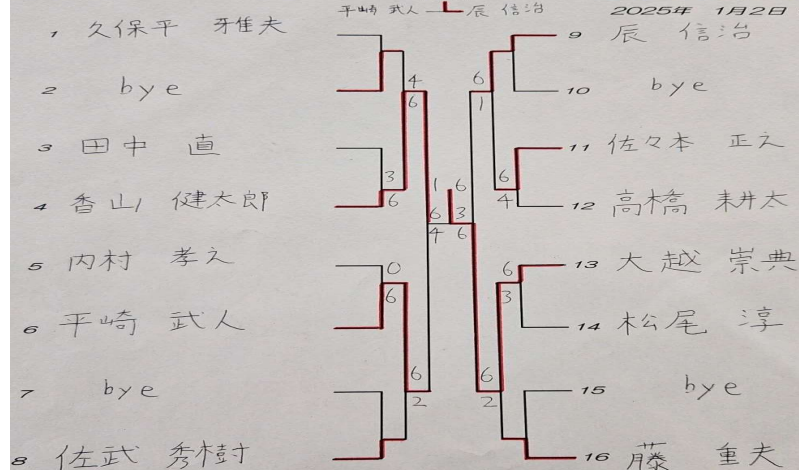 平崎 武人 辰 信治 2025年 1月2日
1 久保平 雅夫
2 bye
3 田中 直
4 香山 健太郎
5 内村 孝之
6 平崎 武人
7 bye
8 佐武 秀樹
4
6
3
6
0
6
6
2
1 6
6 3
4 6
6
1
6
4
6
3
6
2
9 辰 信治
10 bye
11 佐々本 正之
12 高橋 耕太
13 大越 崇典
14 松尾 淳
15 bye
16 藤 重夫